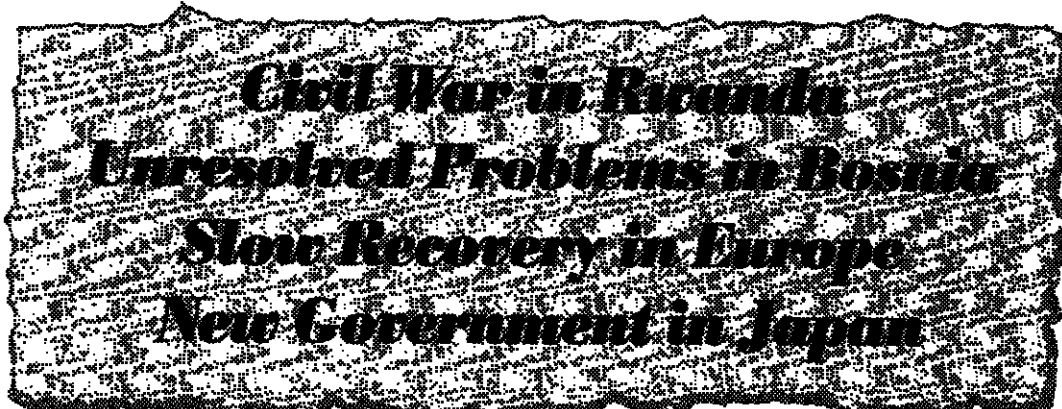 Civil War in Rwanda
Unresolved Problems in Bosnia
Slow Recovery in Europe
New Government in Japan